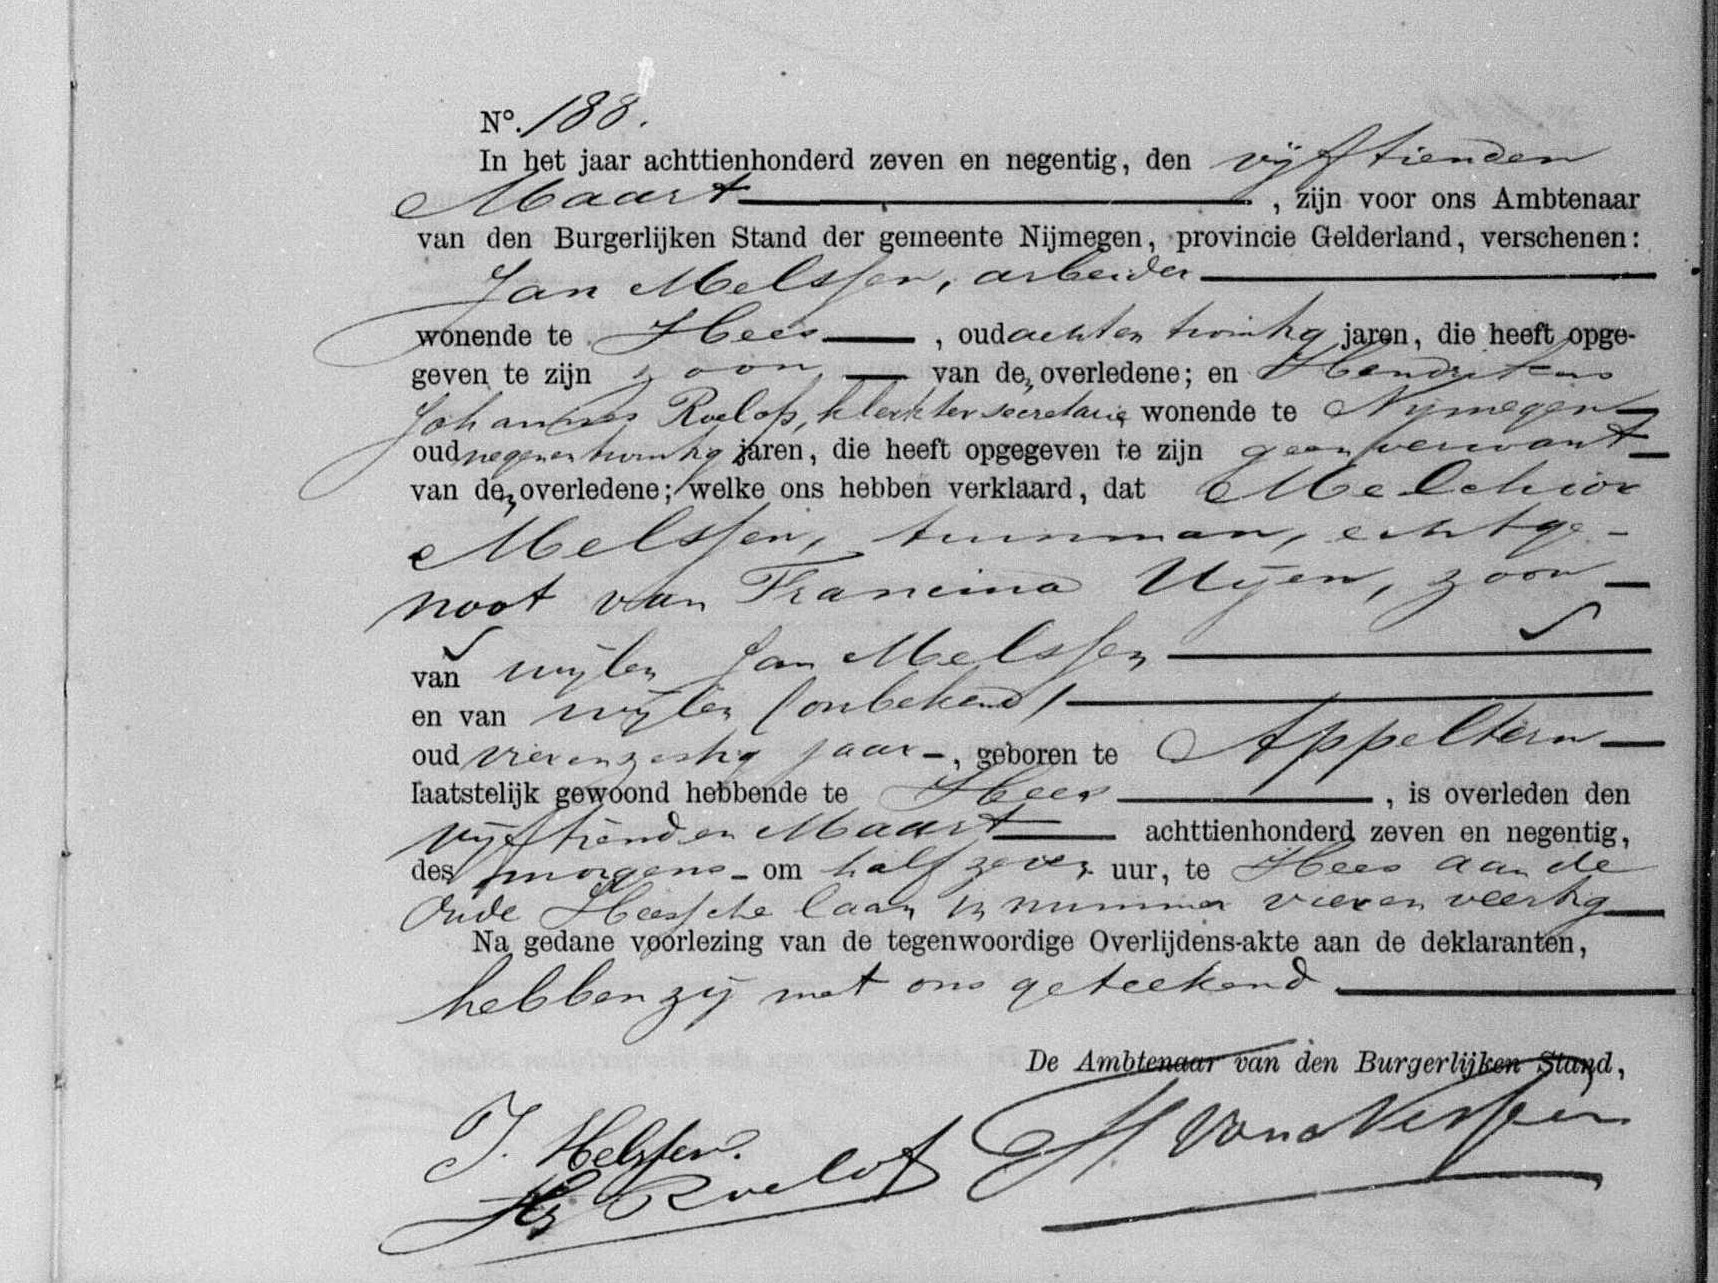 Nº. 188.
In het jaar achttienhonderd zeven en negentig, den vijftienden
Maart , zijn voor ons Ambtenaar
van den Burgerlijken Stand der gemeente Nijmegen, provincie Gelderland, verschenen:
Jan Melssen, arbeider
wonende te Hees , oud achtentwintig jaren, die heeft opge-
geven te zijn zoon van den overledene; en Hendrikus
Johannes Roelofs, klerk ter secretarie wonende te Nijmegen
oud negenentwintig jaren, die heeft opgegeven te zijn geen verwant
van den overledene; welke ons hebben verklaard, dat Melchior
Melssen, tuinman, echtge-
noot van Francina Uijen, zoon
van wijlen Jan Melssen
en van wijlen (onbekend)
oud vierenzestig jaar , geboren te Appeltern
laatstelijk gewoond hebbende te Hees , is overleden den
vijftienden Maart achttienhonderd zeven en negentig,
des morgens om half zeven uur, te Hees aan de
Oude Heessche laan in nummer vierenveertig
Na gedane voorlezing van de tegenwoordige Overlijdens-akte aan de deklaranten,
hebben zij met ons geteekend.
De Ambtenaar van den Burgerlijken Stand,
J. Melssen.
Roelofs